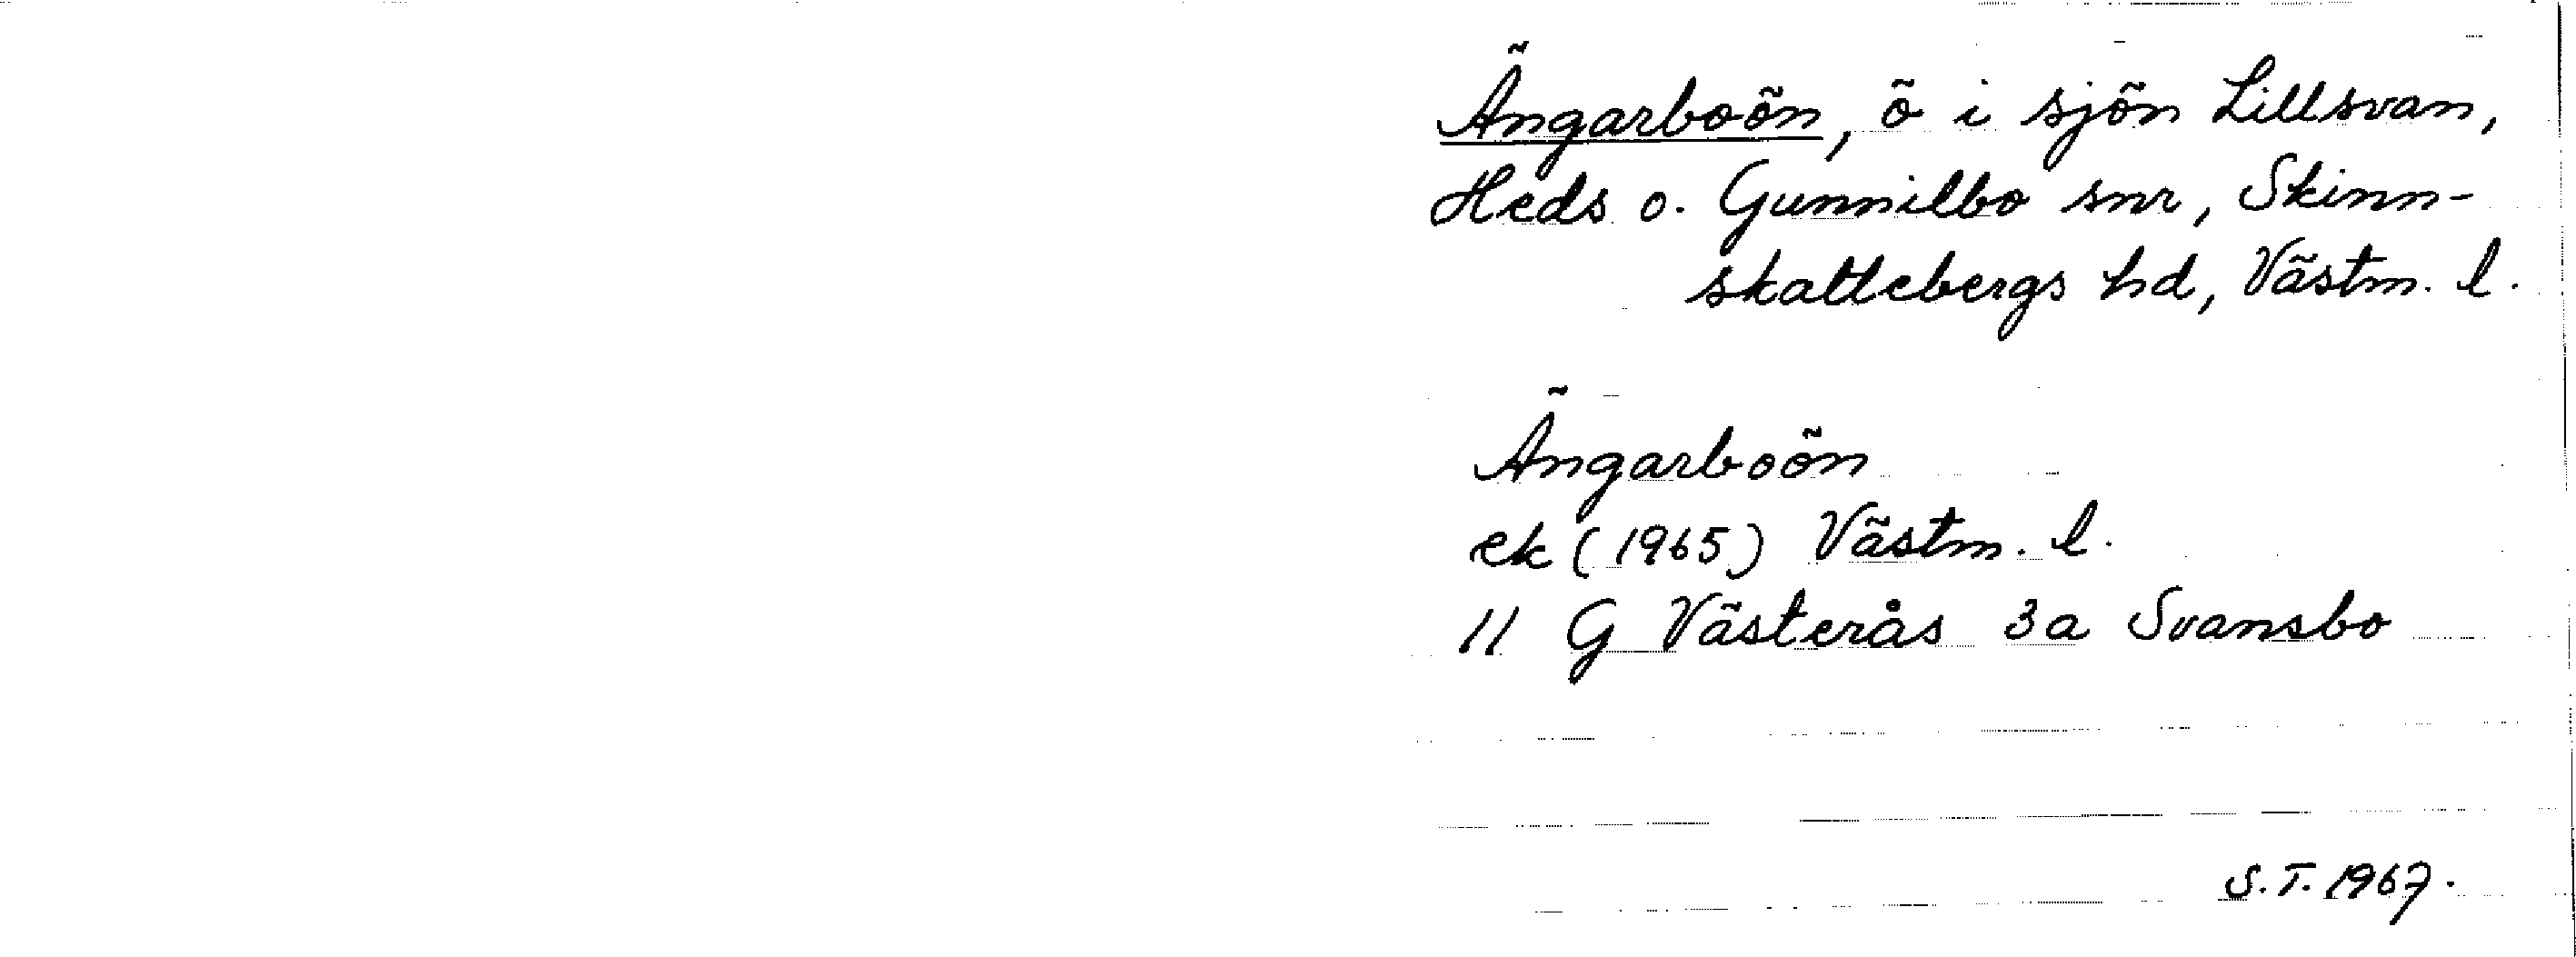 Ängarboön, ö i sjön Lillsvan,
Heds o. Gunnilbo snr, Skinn-
skattebergs hd, Västm. l.
Ängarboön
ek (1965) Västm. l.
11 G Västerås 3a Svansbo
S.T. 1967.